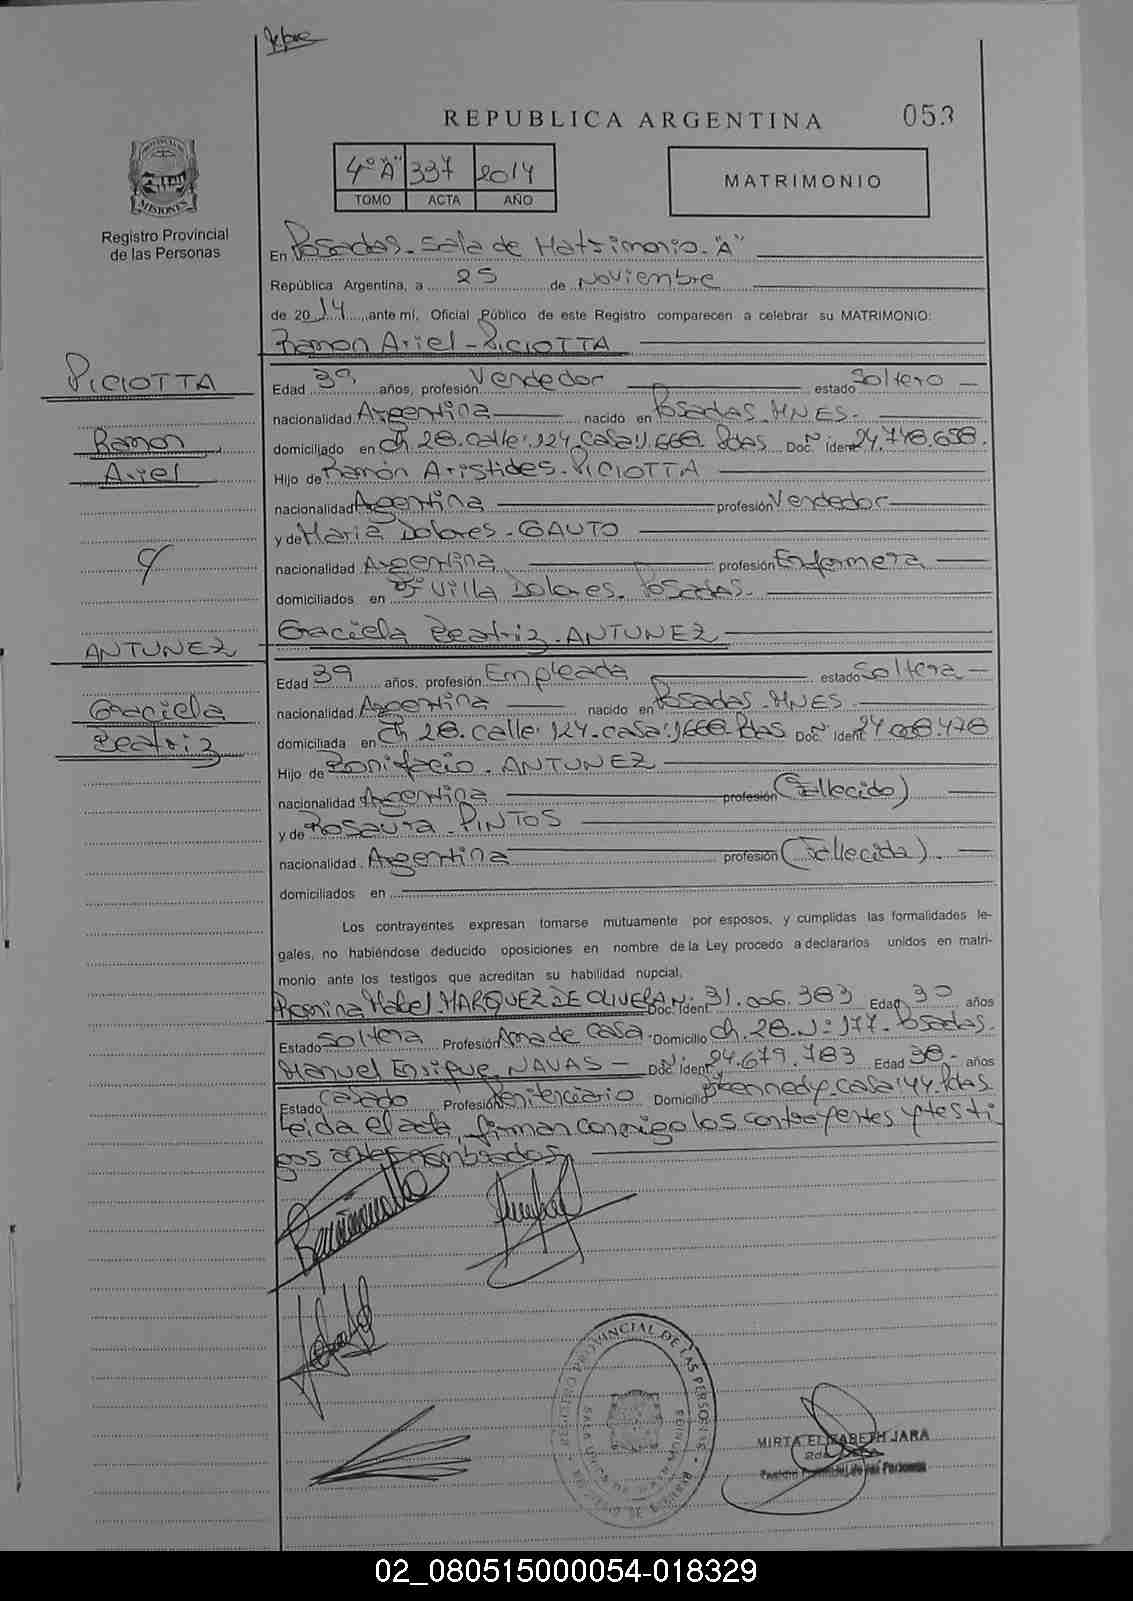 REPUBLICA ARGENTINA
053
4º "A" 337 2014
TOMO ACTA AÑO
MATRIMONIO
PROVINCIA DE
MISIONES
Registro Provincial
de las Personas
En Posadas. Sala de Matrimonio. "A"
República Argentina, a 25 de Noviembre
de 2014, ante mí, Oficial Público de este Registro comparecen a celebrar su MATRIMONIO:
Ramon Ariel - PICIOTTA
PICIOTTA
Ramon
Ariel
Edad 39 años, profesión Vendedor estado Soltero
nacionalidad Argentina nacido en Posadas. MNES.
domiciliado en Ch. 28. calle: 124. casa: 1668. Pdas Doc. ident. 24.748.658.
Hijo de Ramón Aristides. PICIOTTA
nacionalidad Argentina profesión Vendedor
y de Maria Dolores. GAUTO
nacionalidad Argentina profesión Enfermera
domiciliados en Bº Villa Dolores. Posadas.
Graciela Beatriz. ANTUNEZ
y
ANTUNEZ
Graciela
Beatriz
Edad 39 años, profesión Empleada estado Soltera
nacionalidad Argentina nacido en Posadas. MNES.
domiciliada en Ch. 28. calle: 124. casa: 1668. Pdas Doc. ident.
Hijo de Bonifacio. ANTUNEZ
nacionalidad Argentina profesión (Fallecido)
y de Rosaura. PINTOS
nacionalidad Argentina profesión (Fallecida).
domiciliados en
Los contrayentes expresan tomarse mutuamente por esposos, y cumplidas las formalidades le-
gales, no habiéndose deducido oposiciones en nombre de la Ley procedo a declararlos unidos en matri-
monio ante los testigos que acreditan su habilidad nupcial.
Romina Mabel. MARQUEZ DE OLIVERA Doc. Ident. Nº: 31.006.383 Edad 30 años
Estado Soltera Profesión Ama de casa Domicilio Ch. 28. Nº: 177. Posadas.
Manuel Enrique NAVAS - Doc. Ident. Nº: 24.679.783 Edad 38 años
Estado Casado Profesión Penitenciario Domicilio Bº Kennedy. Casa: 44. Pdas
Leida el acta, firman conmigo los contrayentes y testi
gos antes nombrados
REGISTRO PROVINCIAL DE LAS PERSONAS
MIRTA ELIZABETH JARA
Registro Provincial de las Personas
02_080515000054-018329